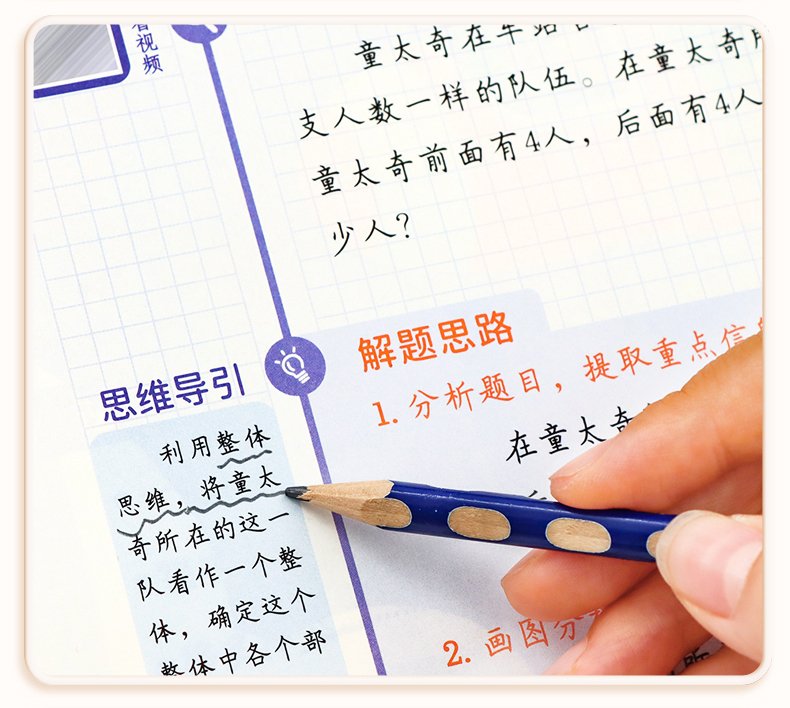 看视频
童太奇在车站
支人数一样的队伍。在童太奇所
童太奇前面有4人，后面有4人
少人？
解题思路
1. 分析题目，提取重点信
在童太奇
2. 画图分
思维导引
利用整体
思维，将童太
奇所在的这一
队看作一个整
体，确定这个
整体中各个部